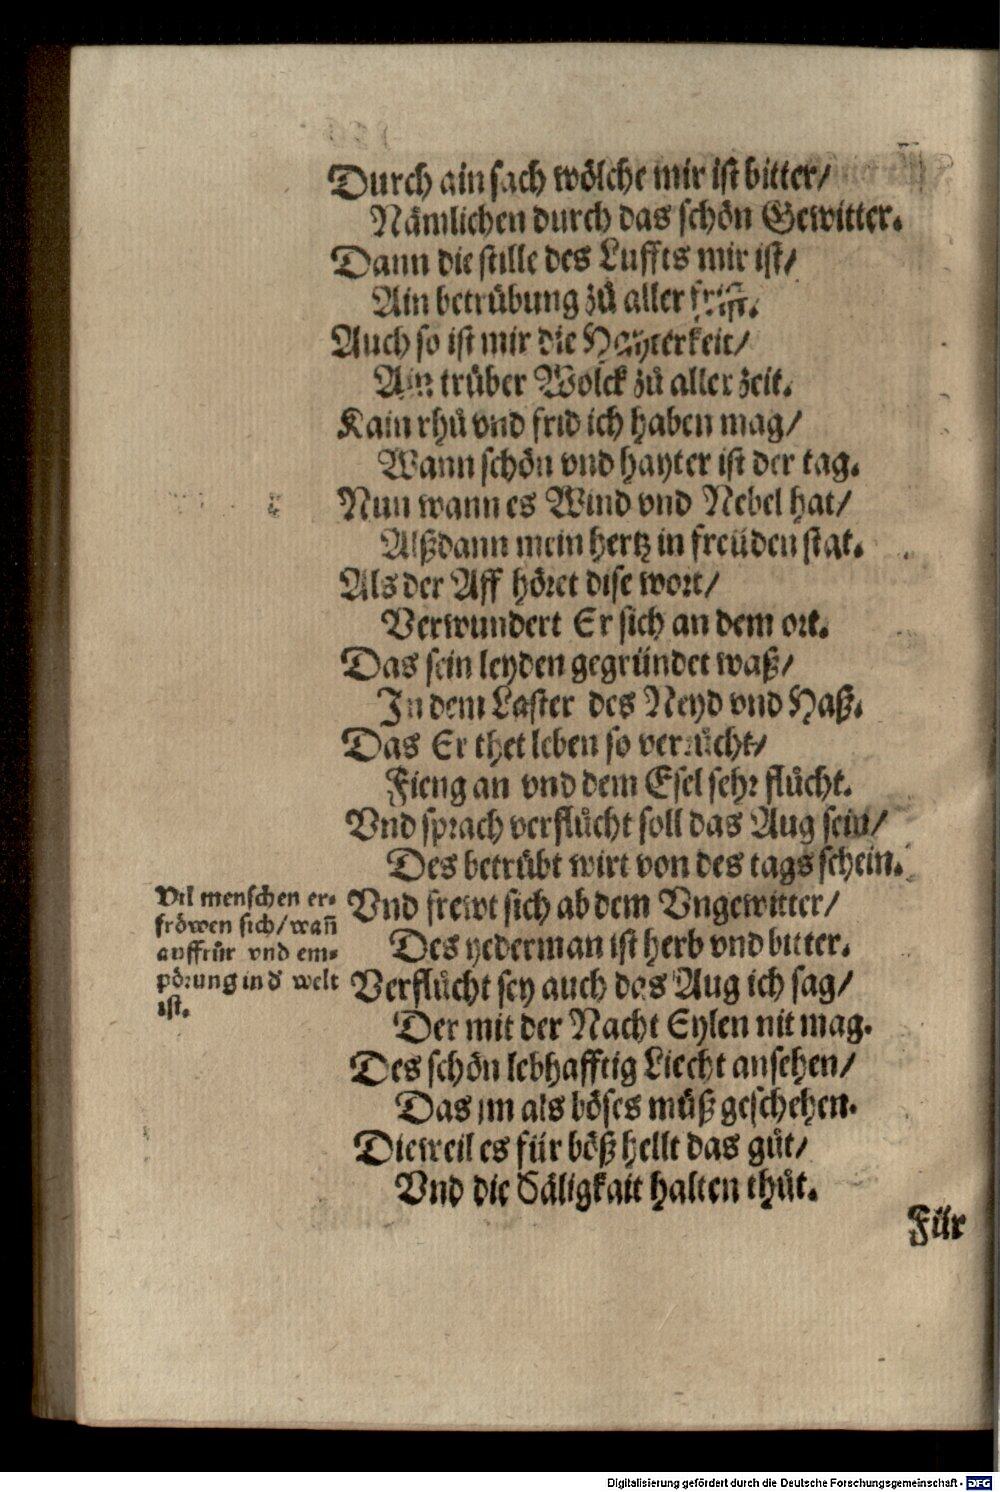 Durch ain sach wölche mir ist bitter/
Nämlichen durch das schön Gewitter.
Dann die stille des Luffts mir ist/
Ain betrübung zů aller frist.
Auch so ist mir die Hayterkeit/
Ain trüber Wolck zů aller zeit.
Kain rhů vnd frid ich haben mag/
Wann schön vnd hayter ist der tag.
Nun wann es Wind vnd Nebel hat/
Alßdann mein hertz in freüden stat.
Als der Aff höret dise wort/
Verwundert Er sich an dem ort.
Das sein leyden gegründet waß/
In dem Laster des Neyd vnd Haß.
Das Er thet leben so verrůcht/
Fieng an vnd dem Esel sehr flůcht.
Vnd sprach verflůcht soll das Aug sein/
Des betrübt wirt von des tags schein.
Vil menschen er-
fröwen sich/wañ
auffrůr vnd em-
pörung in d' welt
ist.
Vnd frewt sich ab dem Vngewitter/
Des yederman ist herb vnd bitter.
Verflůcht sey auch das Aug ich sag/
Der mit der Nacht Eylen nit mag.
Des schön lebhafftig Liecht ansehen/
Das im als böses můß geschehen.
Dieweil es für böß hellt das gůt/
Vnd die Säligkait halten thůt.
Für
Digitalisierung gefördert durch die Deutsche Forschungsgemeinschaft - DFG